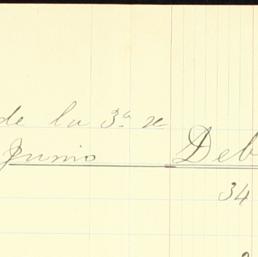 de la 3ª se
Junio Deb
34